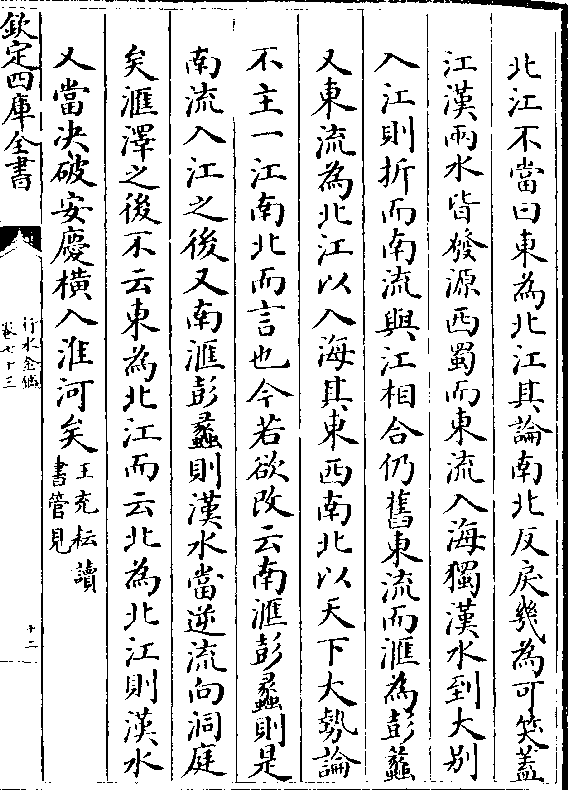 北江不當曰東為北江其論南北反戾幾為可笑蓋
江漢兩水皆發源西蜀而東流入海獨漢水到大别
入江則折而南流與江相合仍舊東流而滙為彭蠡
又東流為北江以入海其東西南北以天下大勢論
不主一江南北而言也今若欲改云南滙彭蠡則是
南流入江之後又南滙彭蠡則漢水當逆流向洞庭
矣滙澤之後不云東為北江而云北為北江則漢水
又當决破安慶橫入淮河矣王充耘讀書管見
欽定四庫全書
行水金鑑
卷七十三
十二